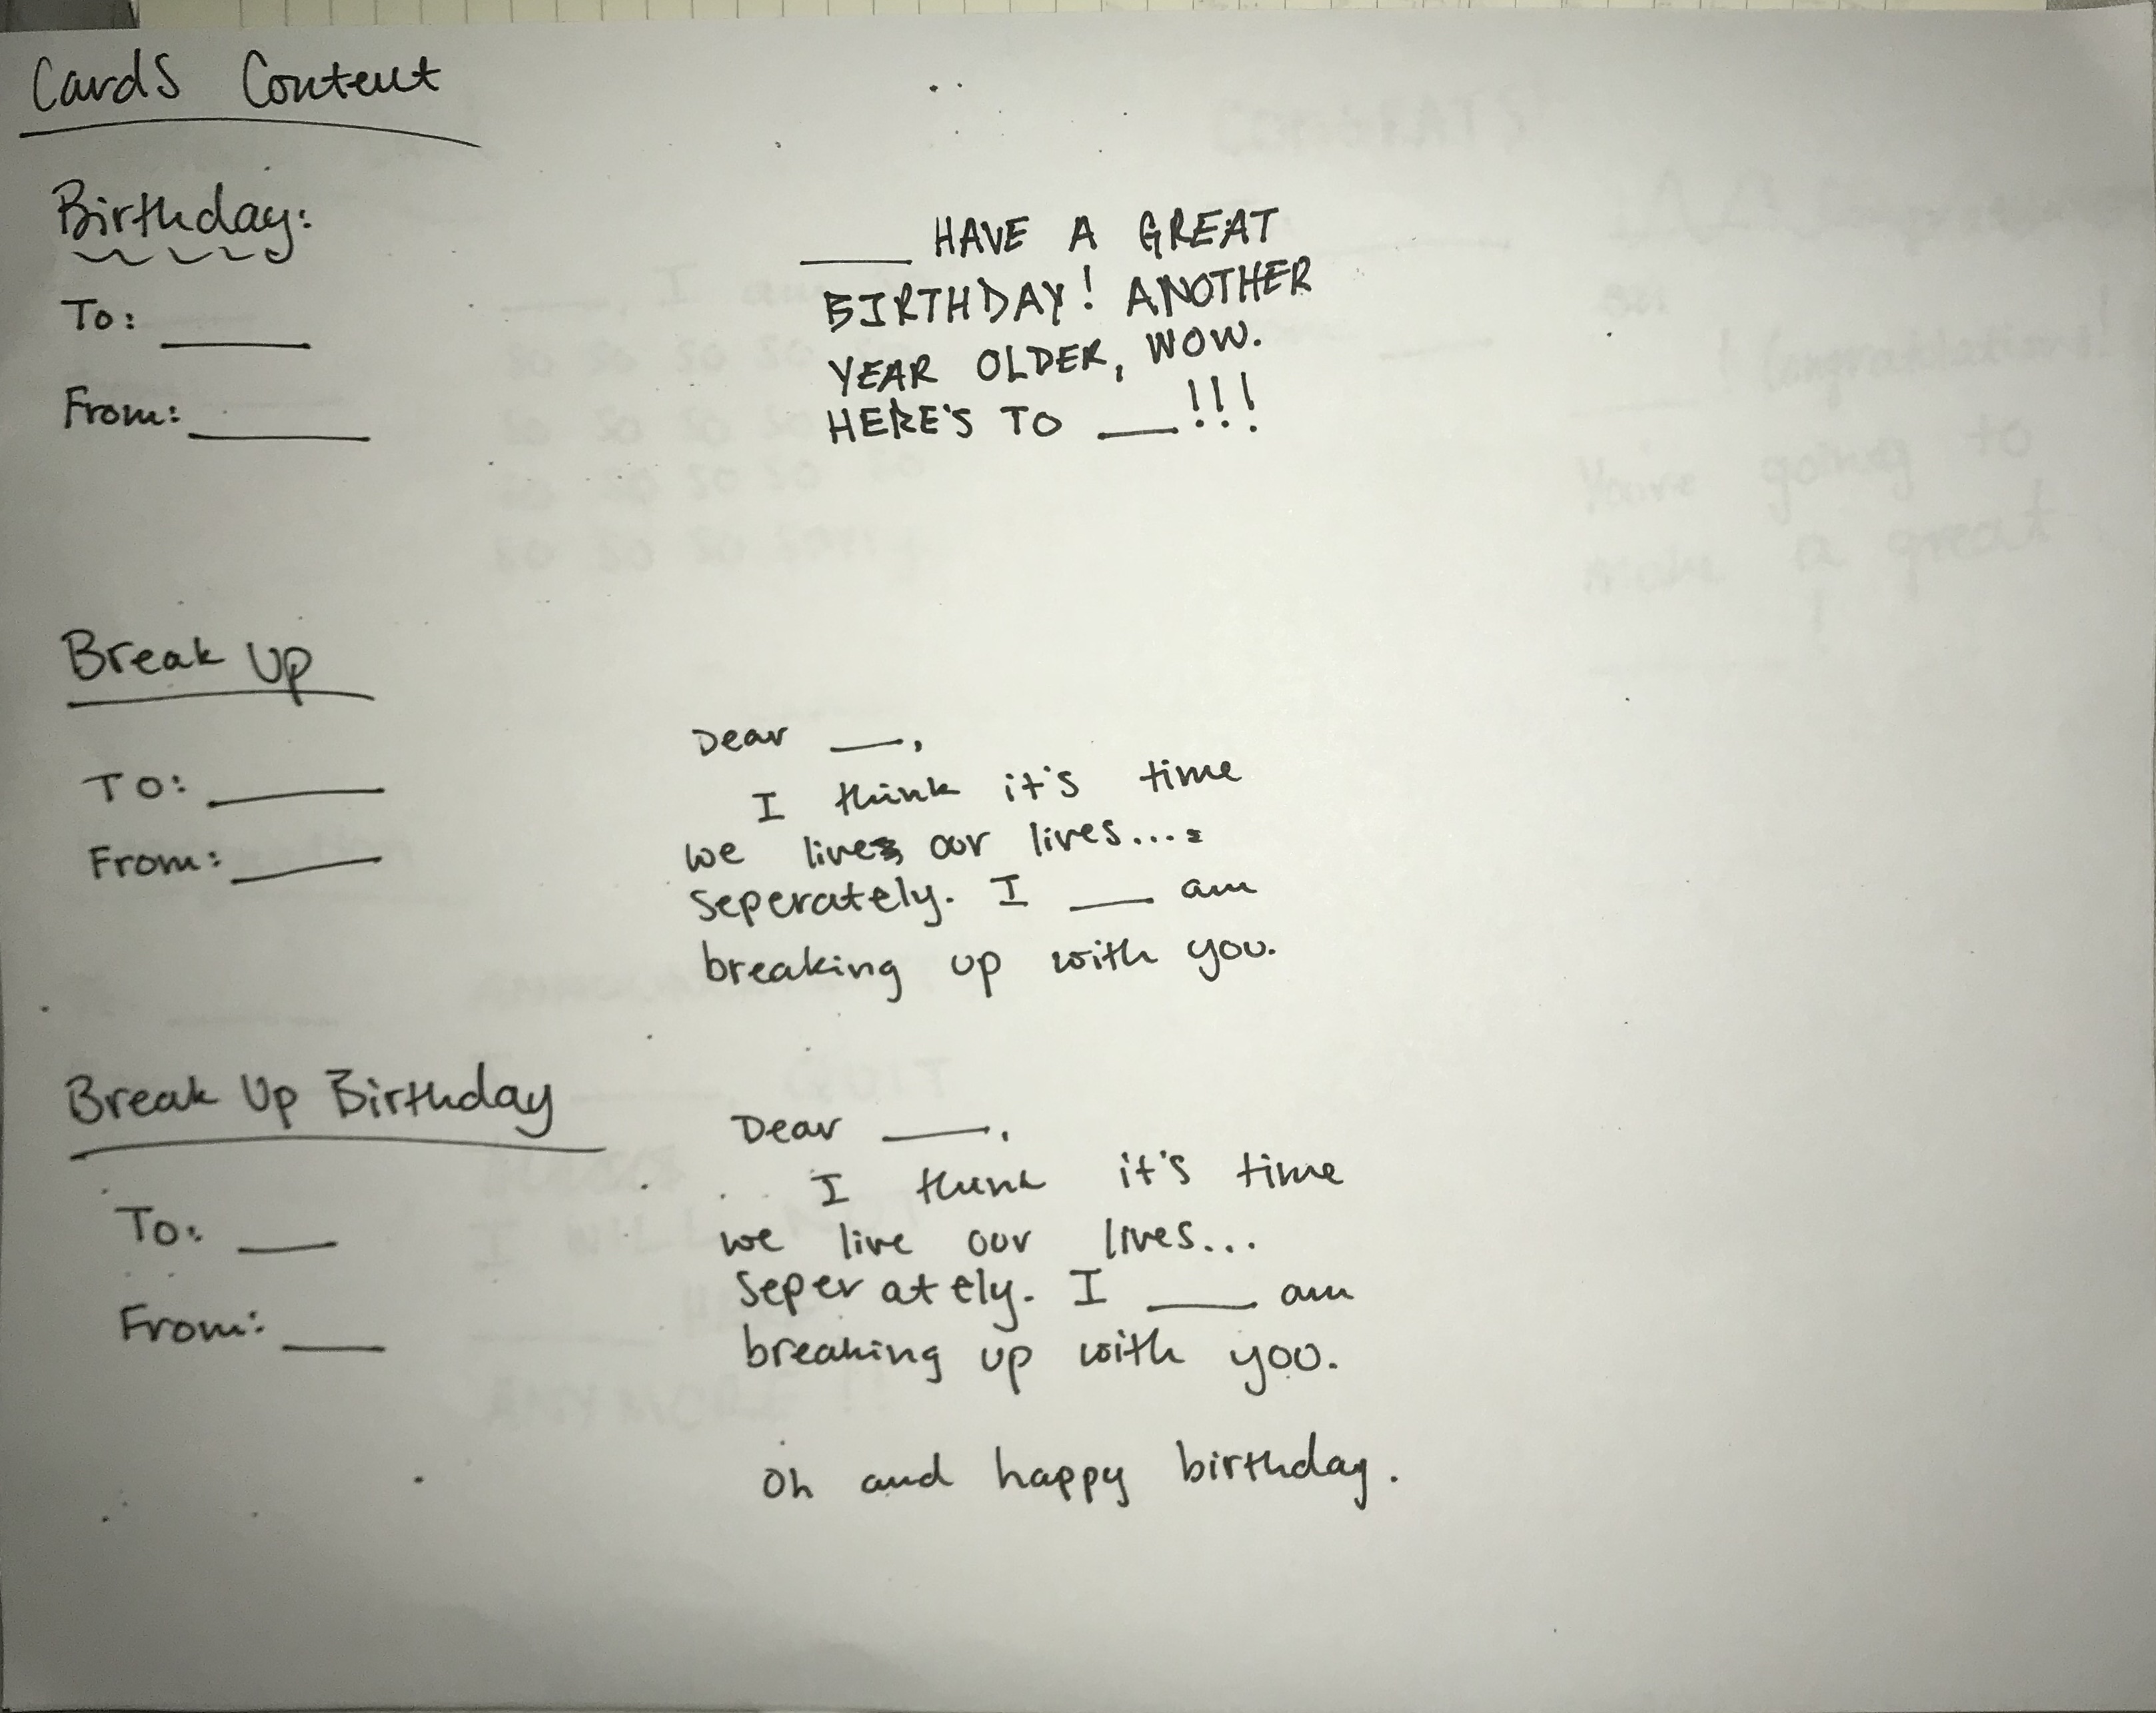 Cards Content
Birthday:
To: ____
From: ____
____ HAVE A GREAT
BIRTHDAY! ANOTHER
YEAR OLDER, WOW.
HERE'S TO ___!!!
Break Up
To: ____
From: ____
Dear ___,
I think it's time
we live our lives....
seperately. I ___ am
breaking up with you.
Break Up Birthday
To: ___
From: ___
Dear ____,
I think it's time
we live our lives...
seperately. I ____ am
breaking up with you.
Oh and happy birthday.